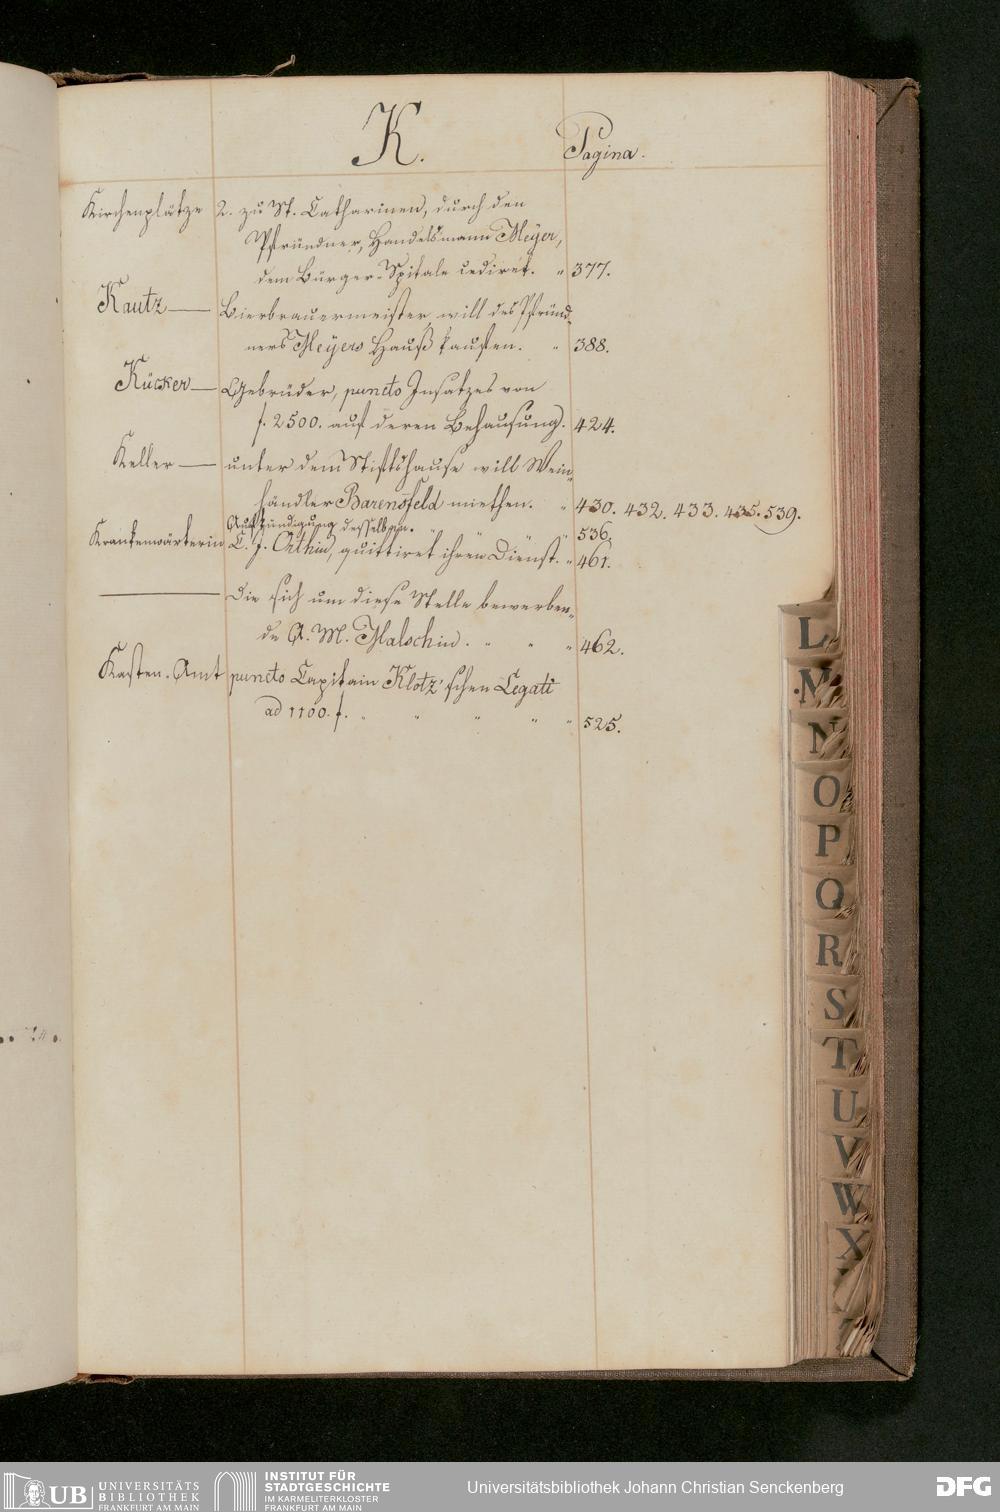 K.
Pagina.
Kirchenplätze 2. zu St. Catharinen, durch den
Pfründner, Handelsmann Meÿer,
dem Bürger-Spitale cediret. " 377.
Kautz — Bierbrauermeister will des Pfründ-
ners Meÿers Hauß kaufen. " 388.
Kücker — Gebrüder, puncto Insatzes von
f. 2500. auf deren Behausung. 424.
Keller — unter dem Stiftshause will Wein-
händler Barensfeld miethen. " 430. 432. 433. 435. 539.
Aufkündigung desselben. " " 536.
Krankenwärterin C. J. Orthin, quittiret ihren Dienst. " 461.
— Die sich um diese Stelle bewerben-
de A. M. Halschin. " " " 462.
Kasten-Amt puncto Capitain Klotz'schen Legati
ad 1100. f. " " " " " 525.
L
M
N
O
P
Q
R
S
T
U
V
W
X
UB UNIVERSITÄTS
BIBLIOTHEK
FRANKFURT AM MAIN
INSTITUT FÜR
STADTGESCHICHTE
IM KARMELITERKLOSTER
FRANKFURT AM MAIN
Universitätsbibliothek Johann Christian Senckenberg
DFG